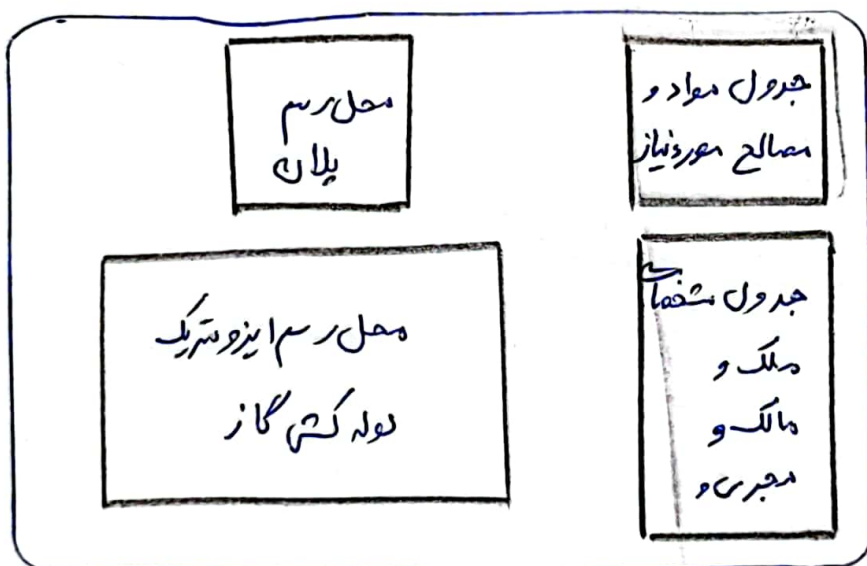 جدول مواد و
مصالح مورد نیاز
محل رسم
پلان
جدول مشخصات
ملک و
مالک و
مجری و
محل رسم ایزومتریک
لوله کشی گاز